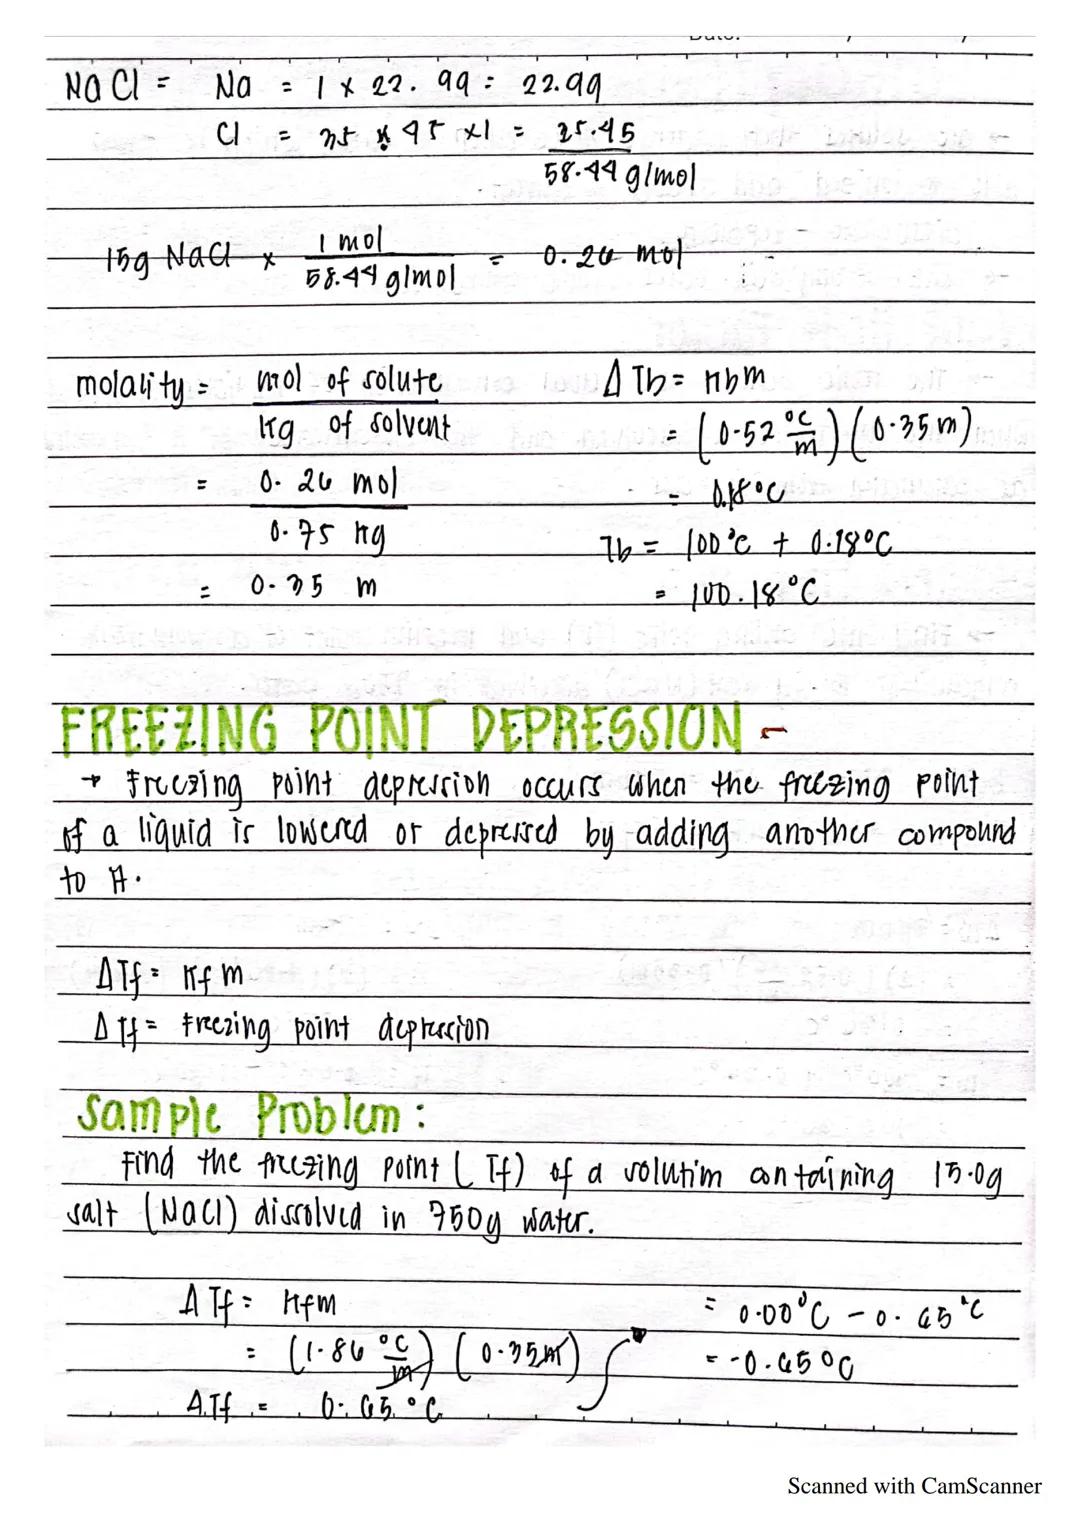 Date: / /
NaCl = Na = 1 x 22.99 = 22.99
Cl = 35 x 45 x1 = 35.45
58.44 g/mol
15g NaCl x 1 mol / 58.44 g/mol = 0.26 mol
molality = mol of solute / kg of solvent
= 0.26 mol / 0.75 kg
= 0.35 m
ΔTb = Kbm
= (0.52 °C/m) (0.35m)
= 0.18°C
Tb = 100°C + 0.18°C
= 100.18°C
FREEZING POINT DEPRESSION -
→ Freezing point depression occurs when the freezing point
of a liquid is lowered or depressed by adding another compound
to it.
ΔTf = Kf m
ΔTf = Freezing point depression
Sample Problem:
Find the freezing point (Tf) of a solution containing 15.0g
salt (NaCl) dissolved in 750g water.
ΔTf = Kfm
= (1.86 °C/m) (0.35m)
ΔTf = 0.65°C
= 0.00°C - 0.65°C
= -0.65°C
Scanned with CamScanner